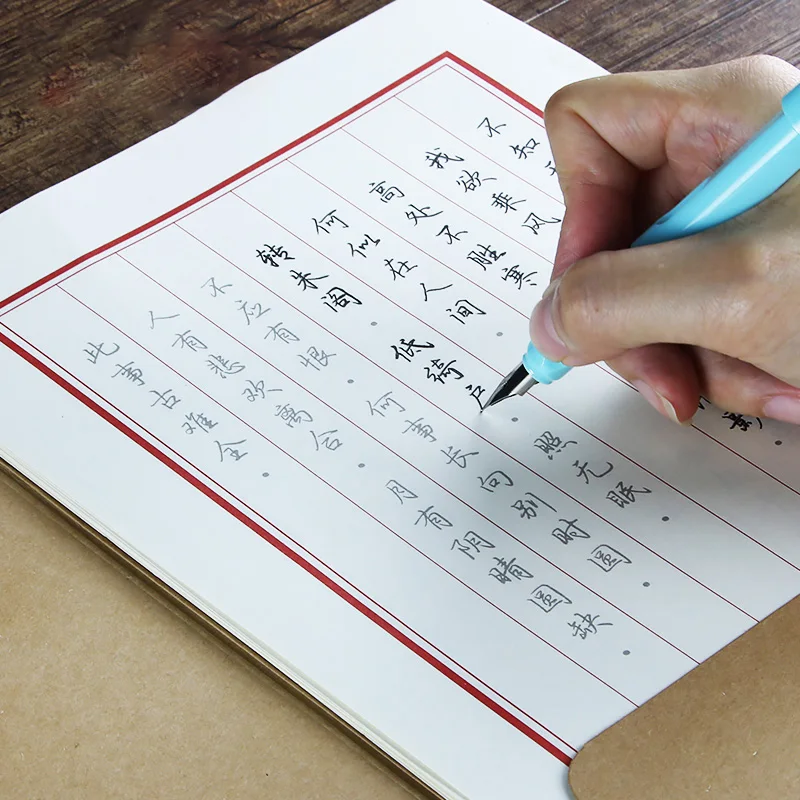 不知
我欲乘风
高处不胜寒。影。
何似在人间。
转朱阁。低绮户。照无眠。
不应有恨。何事长向别时圆。
人有悲欢离合。月有阴晴圆缺。
此事古难全。